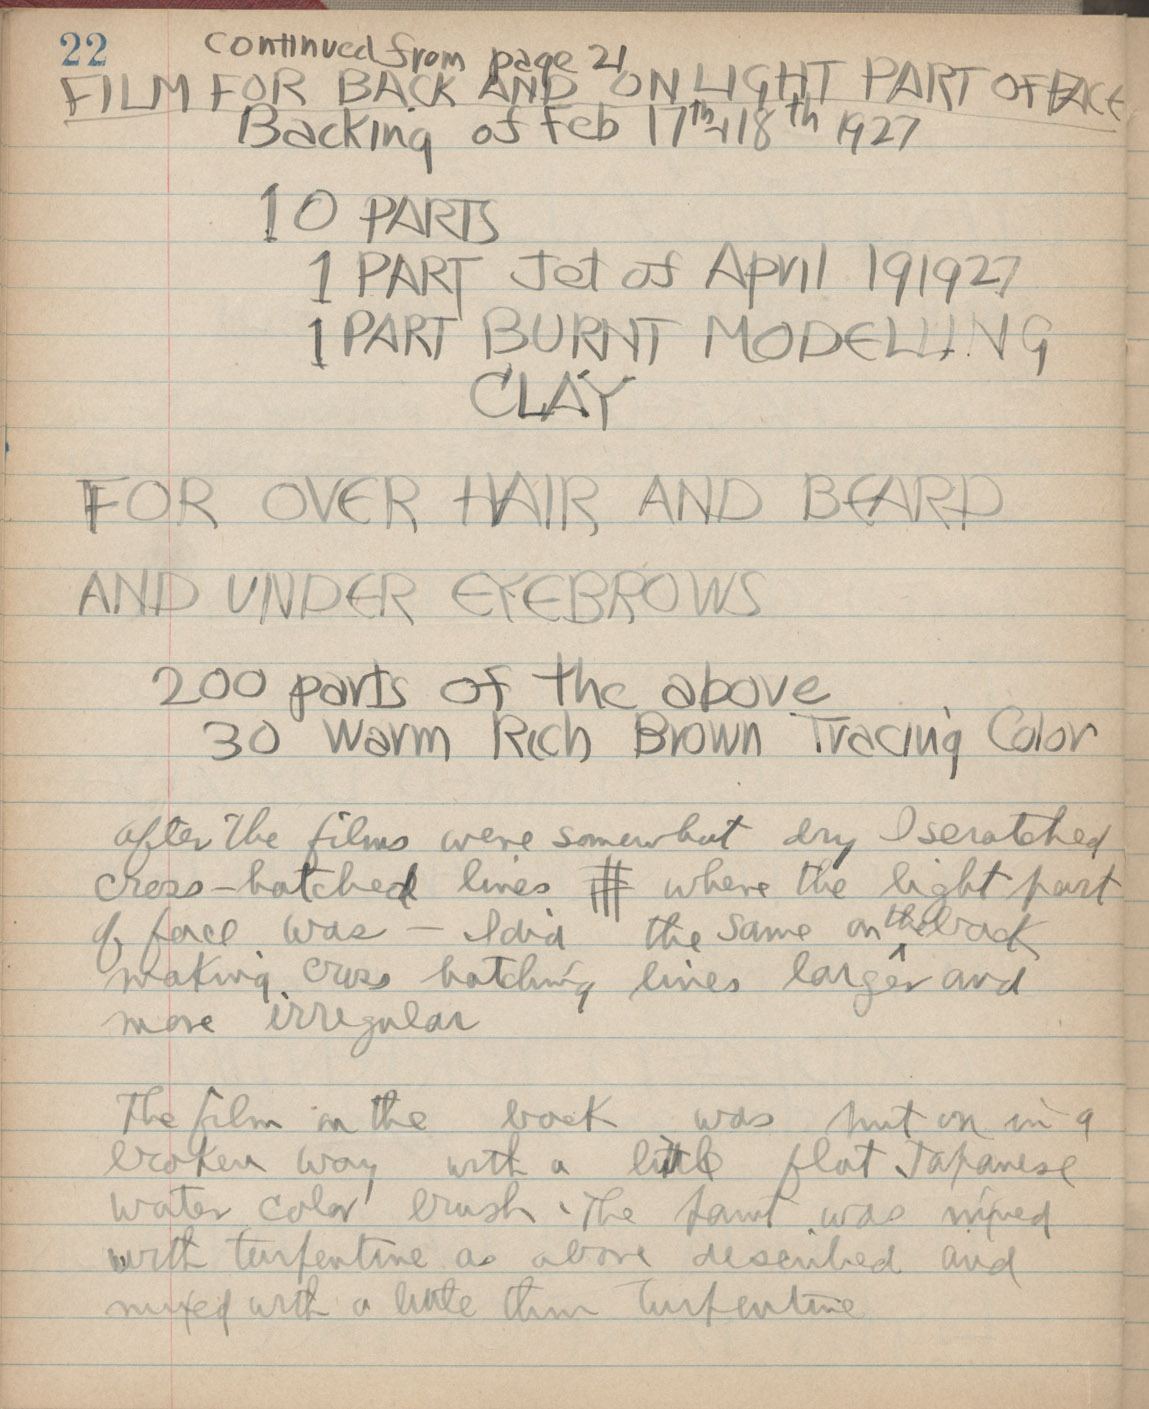 22
Continued from page 21
FILM FOR BACK AND ON LIGHT PART OF FACE
Backing of Feb 17th + 18th 1927
10 PARTS
1 PART Jet of April 19 1927
1 PART BURNT MODELLING
CLAY
FOR OVER HAIR AND BEARD
AND UNDER EYEBROWS
200 parts of the above
30 Warm Rich Brown Tracing Color
after the films were somewhat dry I scratched
cross-hatched lines # where the light part
of face was — I did the same on the back
making cross hatching lines larger and
more irregular
The film on the back was put on in a
broken way with a little flat Japanese
water color brush. The paint was mixed
with turpentine as above described and
mixed with a little thin turpentine